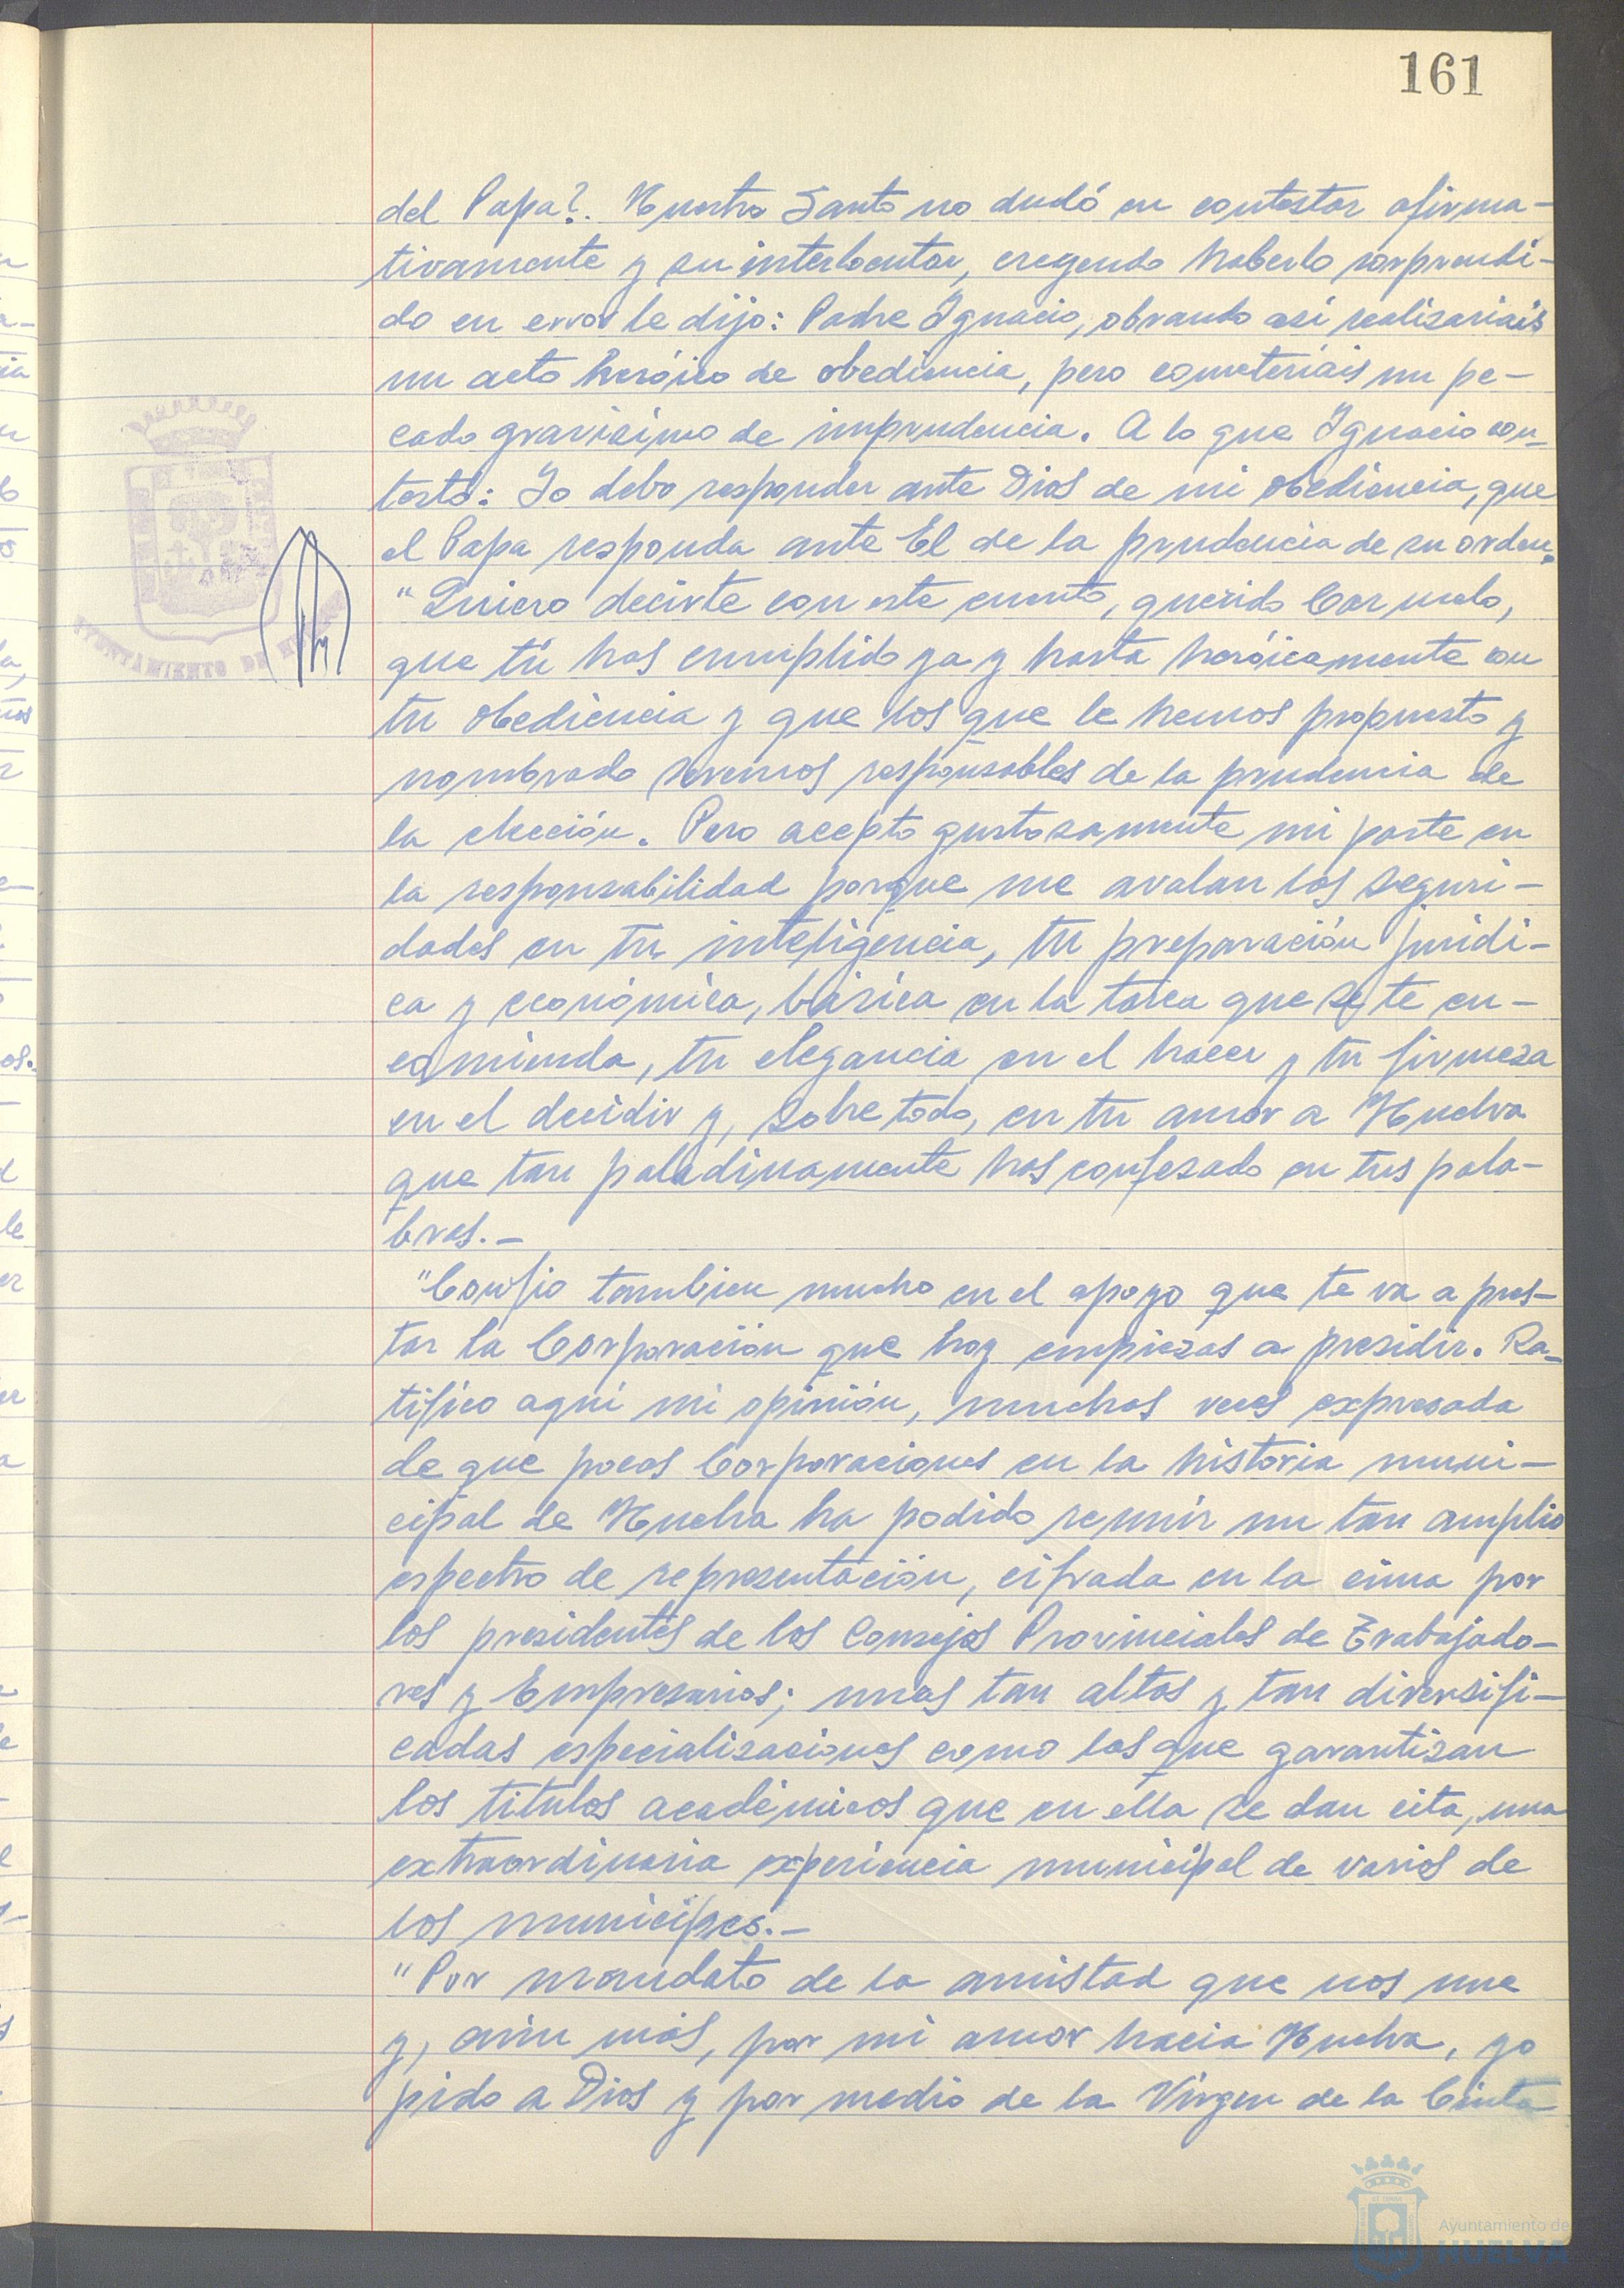 161
del Papa?. Nuestro Santo no dudó en contestar afirma-
tivamente y su interlocutor, creyendo haberlo sorprendi-
do en error le dijo: Padre Ignacio, obrando asi realizariais
un acto heróico de obediencia, pero cometeriais un pe-
cado gravisimo de imprudencia. A lo que Ignacio con-
testó: Yo debo responder ante Dios de mi obediencia, que
el Papa responda ante El de la prudencia de su orden.
"Quiero decirte con este cuento, querido Carmelo,
que tú has cumplido ya y hasta heróicamente con
tu obediencia y que los que le hemos propuesto y
nombrado seremos responsables de la prudencia de
la elección. Pero acepto gustosamente mi parte en
la responsabilidad porque me avalan las seguri-
dades en tu inteligencia, tu preparación juridi-
ca y económica, básica en la tarea que se te en-
comienda, tu elegancia en el hacer y tu firmeza
en el decidir y, sobre todo, en tu amor a Huelva
que tan paladinamente has confesado en tus pala-
bras.-
"Confio tambien mucho en el apoyo que te va a pres-
tar la Corporación que hoy empiezas a presidir. Ra-
tifico aqui mi opinión, muchas veces expresada
de que pocas Corporaciones en la historia muni-
cipal de Huelva ha podido reunir un tan amplio
espectro de representación, cifrada en la cima por
los presidentes de los Consejos Provinciales de Trabajado-
res y Empresarios; unas tan altas y tan diversifi-
cadas especializaciones como las que garantizan
los titulos académicos que en ella se dan cita, una
extraordinaria experiencia municipal de varios de
los municipes.-
"Por mandato de la amistad que nos une
y, aún más, por mi amor hacia Huelva, yo
pido a Dios y por medio de la Virgen de la Cinta
AYUNTAMIENTO DE HUELVA
Ayuntamiento de
HUELVA